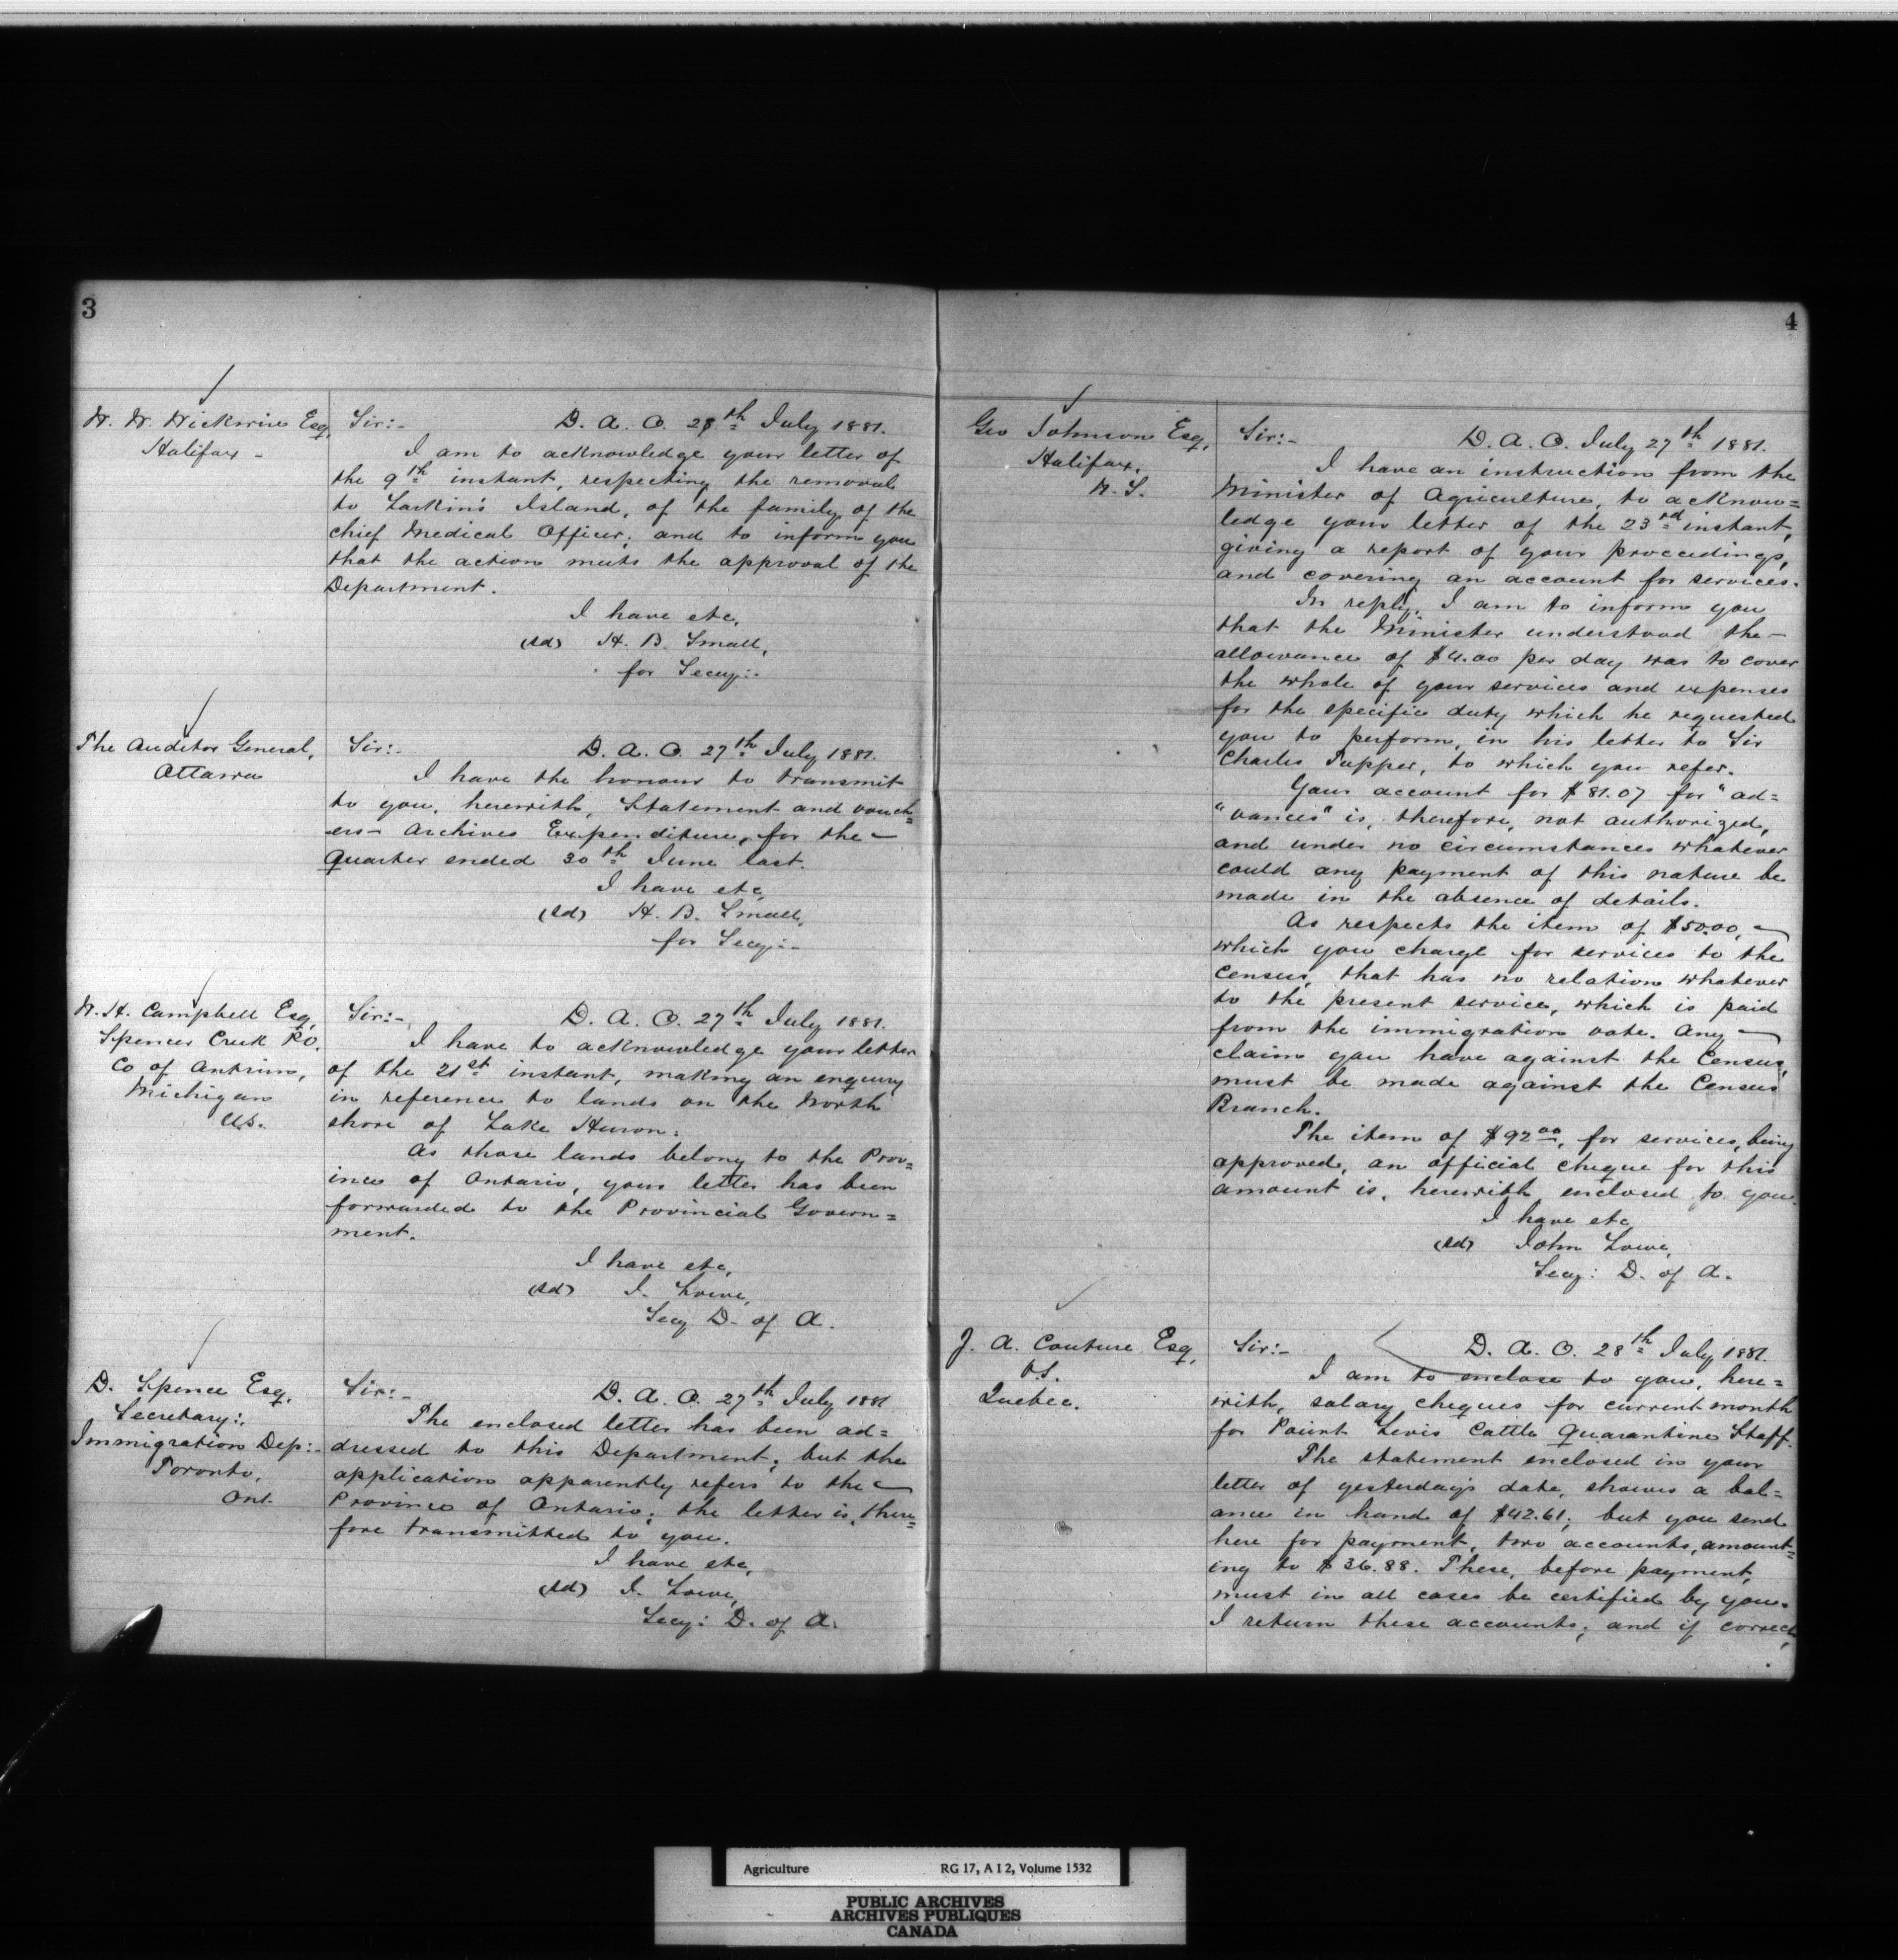 3
W. W. Wickwire Esq,
Halifax -
Sir:- D. A. O. 28th July 1881.
I am to acknowledge your letter of
the 9th instant, respecting the removal
to Larkin's Island, of the family of the
chief Medical Officer; and to inform you
that the action meets the approval of the
Department.
I have etc,
(sd) H. B. Small,
for Secy:-
The Auditor General,
Ottawa
Sir:- D. A. O. 27th July 1881.
I have the honour to transmit
to you, herewith, Statement and vouch=
ers- Archives Expenditure, for the -
Quarter ended 30th June last.
I have etc,
(sd) H. B. Small,
for Secy:-
W. H. Campbell Esq,
Spencer Creek P.O.
Co of Antrim,
Michigan
U.S.
Sir:- D. A. O. 27th July 1881.
I have to acknowledge your letter
of the 21st instant, making an enquiry
in reference to lands on the North
shore of Lake Huron.
As those lands belong to the Prov=
ince of Ontario, your letter has been
forwarded to the Provincial Govern=
ment.
I have etc,
(sd) J. Lowe,
Secy D. of A.
D. Spence Esq,
Secretary:,
Immigration Dep:-
Toronto,
Ont.
Sir:- D. A. O. 27th July 1881
The enclosed letter has been ad=
dressed to this Department; but the
application apparently refers to the -
Province of Ontario; the letter is, there=
fore transmitted to you.
I have etc,
(sd) J. Lowe,
Secy: D. of A.
4
Geo Johnson Esq,
Halifax,
N. S.
Sir:- D. A. O. July 27th 1881.
I have an instruction from the
Minister of Agriculture, to acknow=
ledge your letter of the 23rd instant,
giving a report of your proceedings,
and covering an account for services.
In reply, I am to inform you
that the Minister understood the -
allowance of $4.00 per day was to cover
the whole of your services and expenses
for the specific duty which he requested
you to perform, in his letter to Sir
Charles Tupper, to which you refer.
Your account for $81.07 for "ad=
"vances" is, therefore, not authorized,
and under no circumstances whatever
could any payment of this nature be
made in the absence of details.
As respects the item of $50.00, -
which you charge for services to the
Census, that has no relation whatever
to the present service, which is paid
from the immigration vote. Any -
claim you have against the Census,
must be made against the Census
Branch.
The item of $92.00, for services, being
approved, an official cheque for this
amount is, herewith, enclosed to you.
I have etc,
(sd) John Lowe,
Secy: D. of A.
J. A. Couture Esq,
V.S.
Quebec.
Sir:- D. A. O. 28th July 1881.
I am to enclose to you, here=
with, salary cheques for current month
for Point Levis Cattle Quarantine Staff.
The statement enclosed in your
letter of yesterday's date, shows a bal=
ance in hand of $42.61; but you send
here for payment, two accounts, amount=
ing to $36.88. These, before payment,
must in all cases be certified by you.
I return these accounts; and if correct,
Agriculture RG 17, A I 2, Volume 1532
PUBLIC ARCHIVES
ARCHIVES PUBLIQUES
CANADA